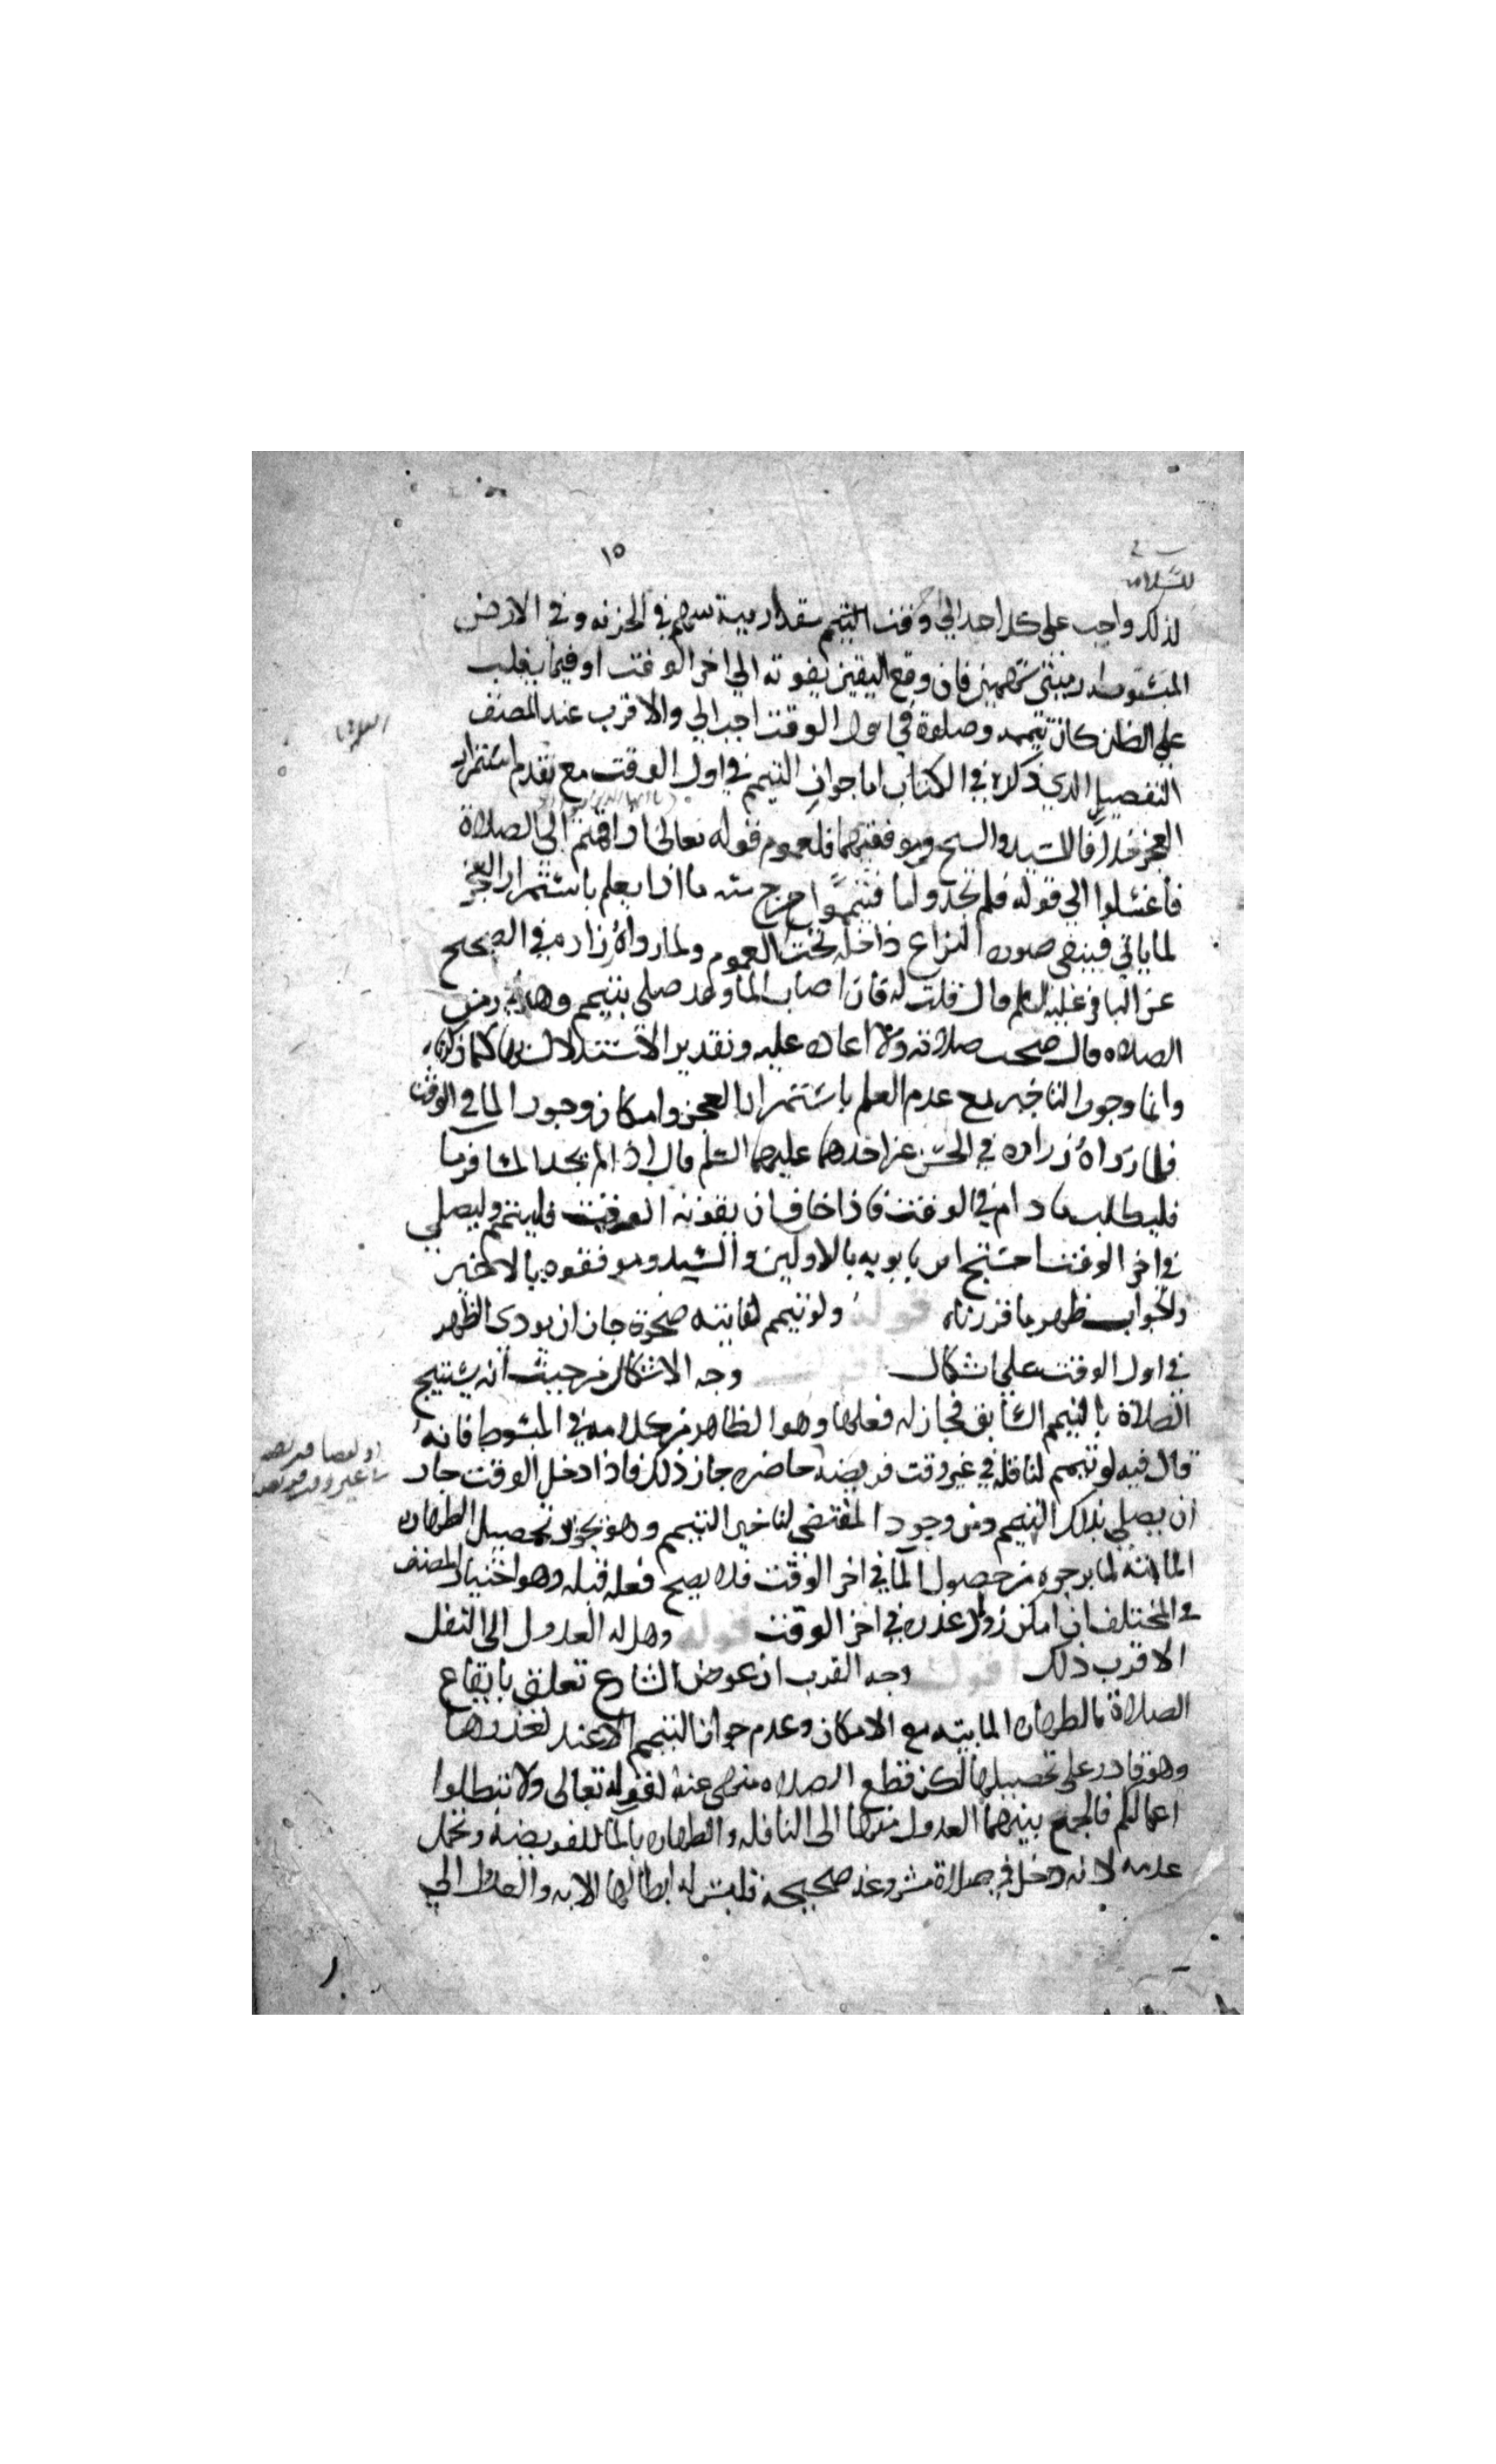 ١٥
لذلك واجب على كل احد الى وقت التيمم مقدار رمية سهم في الحزنه وفي الارض
رمیتی سهمین فان وقع اليقين بفوته الى اخر الوقت او فيما يغلب
على الظن كان تيممه وصلوة في اول الوقت احب الي والاقرب عند المصنف
التفصيل الذي ذكره في الكتاب اما جواز التيمم في اول الوقت مع تقدم استمرار
العجز للسيد والشيخ فلعموم قوله تعالى اذا قمتم الى الصلاة
فاغسلوا الى قوله فلم تجدوا ما فتيمموا خرج منه ما اذا يعلم باستمرار العجز
لما ياتي فيبقى صوره النزاع داخله تحت العموم ولما رواه زراره في الصحيح
عن الباقر عليه السلم قال قلت له فان اصاب الما وقد صلى بتيمم وهو في وقت
الصلاه قال صحت صلاته ولا اعاده عليه وتقدير الاستدلال بها كما
واما وجوب التاخير مع عدم العلم باستمرار العجز وامكان وجود الما في الوقت
فلما رواه زراره في الحسن عن احدهما عليهما السلم قال اذا لم يجد المسافر ما
فليطلب ما دام في الوقت فاذا خاف ان يفوته الوقت فليتيمم وليصلي
في اخر الوقت احتج ابن بابويه بالاولين والسيد وموفقوه بالاخير
والجواب ظهر ما قررناه قوله ولو تيمم لفايته ضحوة جاز ان يودي الظهر
في اول الوقت على اشكال وجه الاشكال من حيث انه يستبيح
الصلاة بالتيمم السابق فجاز له فعلها وهو الظاهر من كلامه في المبسوط فانه
قال فيه لو تيمم لنافله في غير وقت فريضه حاضره جاز ذلك فاذا دخل الوقت جاز
ان يصلي بذلك التيمم ومن وجود المقتضى لتاخير التيمم وهو تجويز تحصيل الطهاره
المائيه لما يرجوه من حصول الما في اخر الوقت فلا يصح فعله قبله وهو اختيار المصنف
في المختلف ان امكن زوال عذره في اخر الوقت قوله وهل له العدول الى النفل
الاقرب ذلك اقول وجه القرب ان غرض الشارع تعلق بايقاع
الصلاة بالطهاره المايیه مع الامكان وعدم جواز التيمم الا عند تعذرها
وهو قادر على تحصيلها لكن قطع الصلاه منهى عنه لقوله تعالى ولا تبطلوا
اعمالكم فالجمع بينهما العدول منها الى النافله والطهاره بالما للفريضه ويحتمل
عدمه لانه دخل في صلاة مشروعه صحيحة فليس له ابطالها للايه والعدول الى